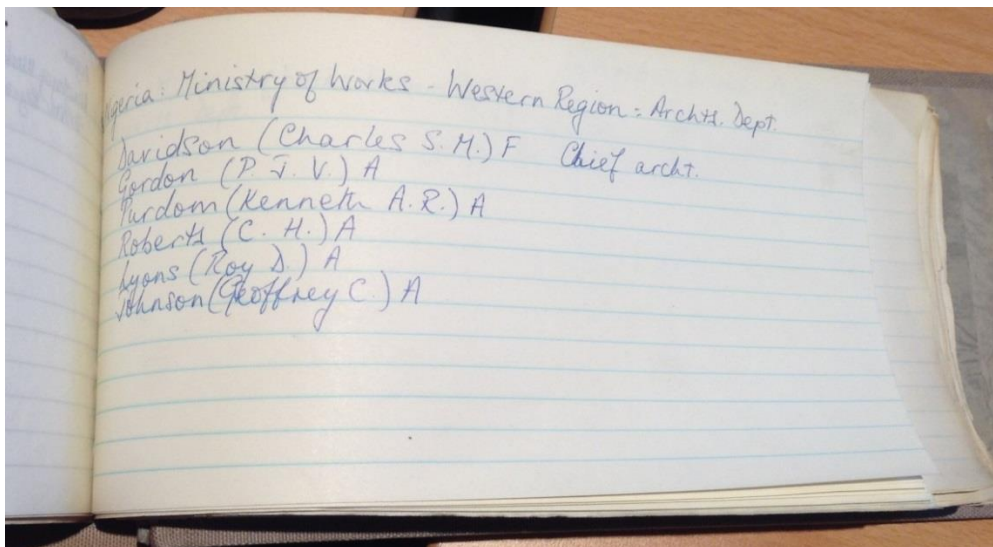 Nigeria: Ministry of Works - Western Region: Archts. Dept.
Davidson (Charles S. M.) F Chief archt.
Gordon (P. J. V.) A
Purdom (Kenneth A. R.) A
Roberts (C. H.) A
Lyons (Roy D.) A
Johnson (Geoffrey C.) A